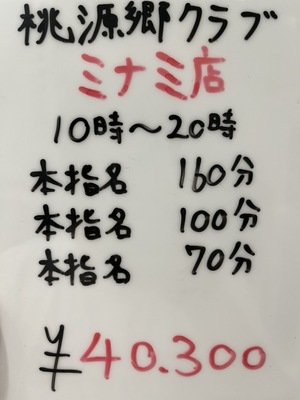 桃源郷クラブ
ミナミ店
10時〜20時
本指名 160分
本指名 100分
本指名 70分
¥40.300